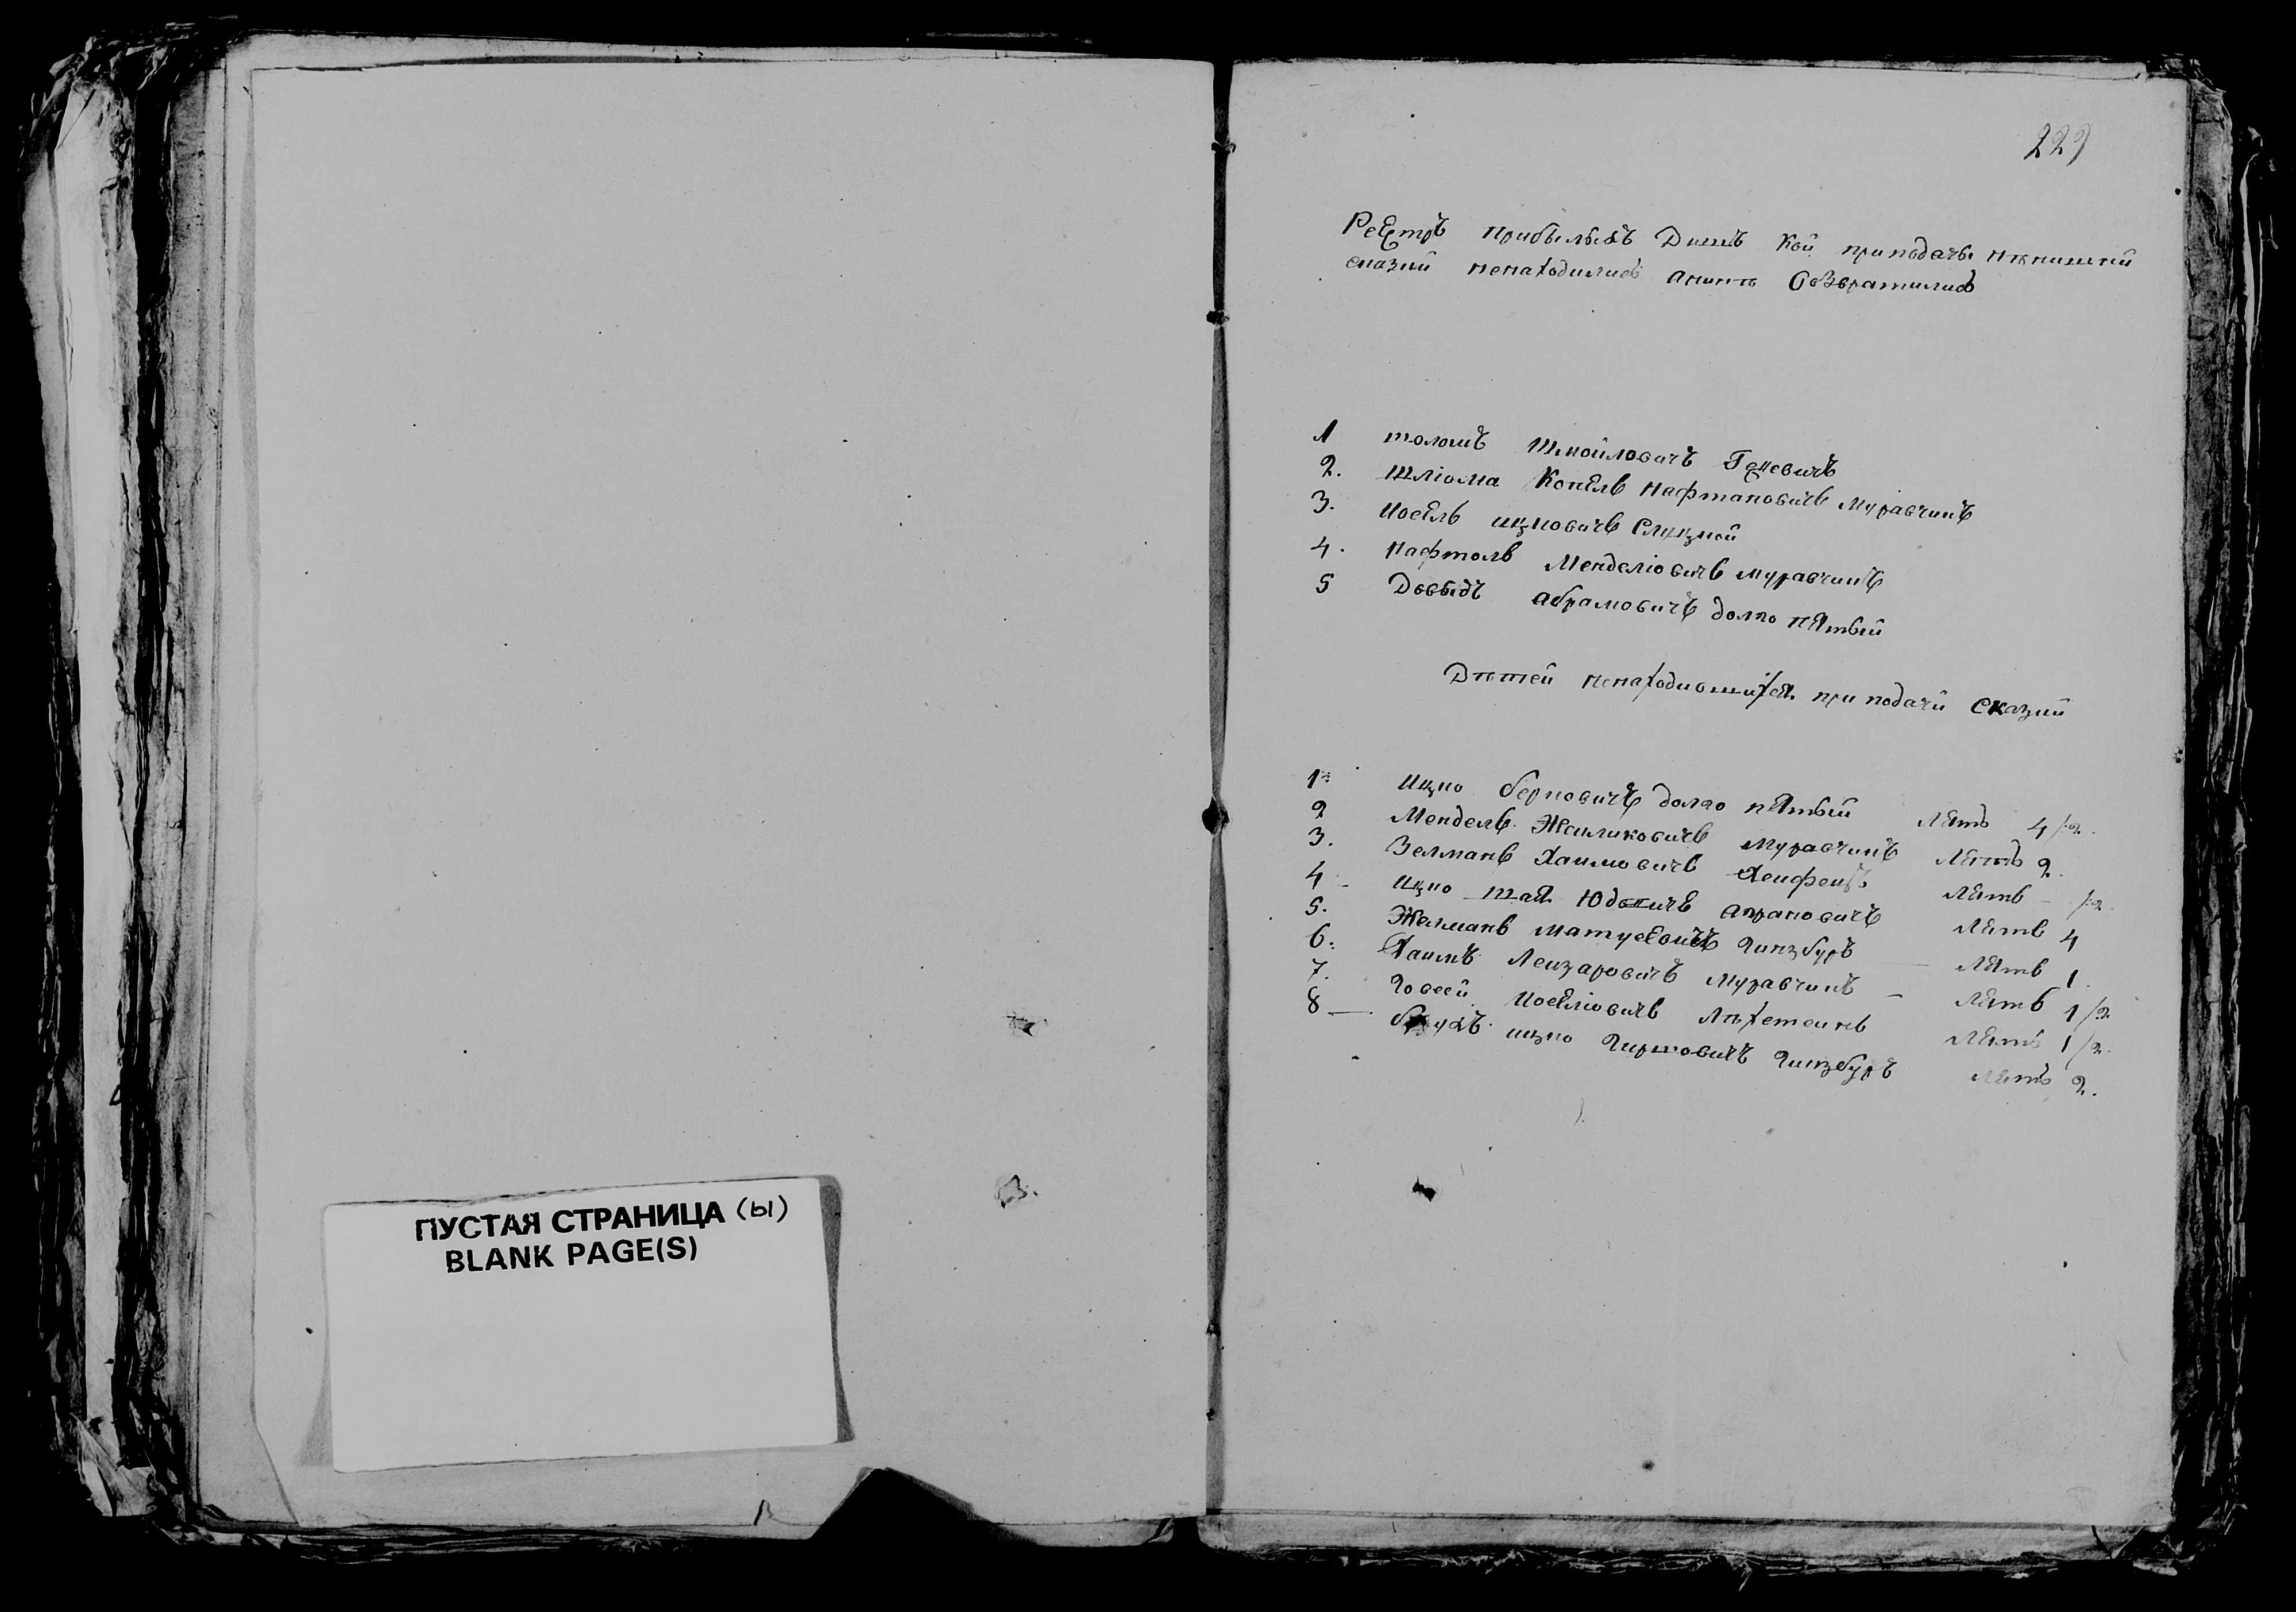 ПУСТАЯ СТРАНИЦА (Ы)
BLANK PAGE(S)
Реэстръ прибылыхъ Душъ Кои приподачы
сказки ненаходилис а Возвратилис
1 Шмойловичъ
2. Шліома Копель Нафтановичь Муравчикъ
3. Иосель ицковичь Слуцкой
4. Нафтоль Менделіовичь Муравчикъ
5 Довыдъ абрамовичъ долгопятый
Дѣтей ненаходившихся приподачи сказки
1. Ицко берковичъ долгопятый Лѣтъ 4 1/2.
2 Мендель Желиковичь Муравчикъ Лѣтъ 2.
3. Зелманъ Хаимовичь Лѣтъ – 1/2.
4 – Ицко Лѣтъ 4
5. Желманъ Матусовичъ Гинзбургъ – Лѣтъ 1.
6. Хаимъ Лейзаровичъ Муравчикъ – Лѣтъ 1 1/2
7. Иоселіовичь Лѣтъ 1 1/2.
8 – ицко Гиршовичъ Гинзбургъ Лѣтъ 2.